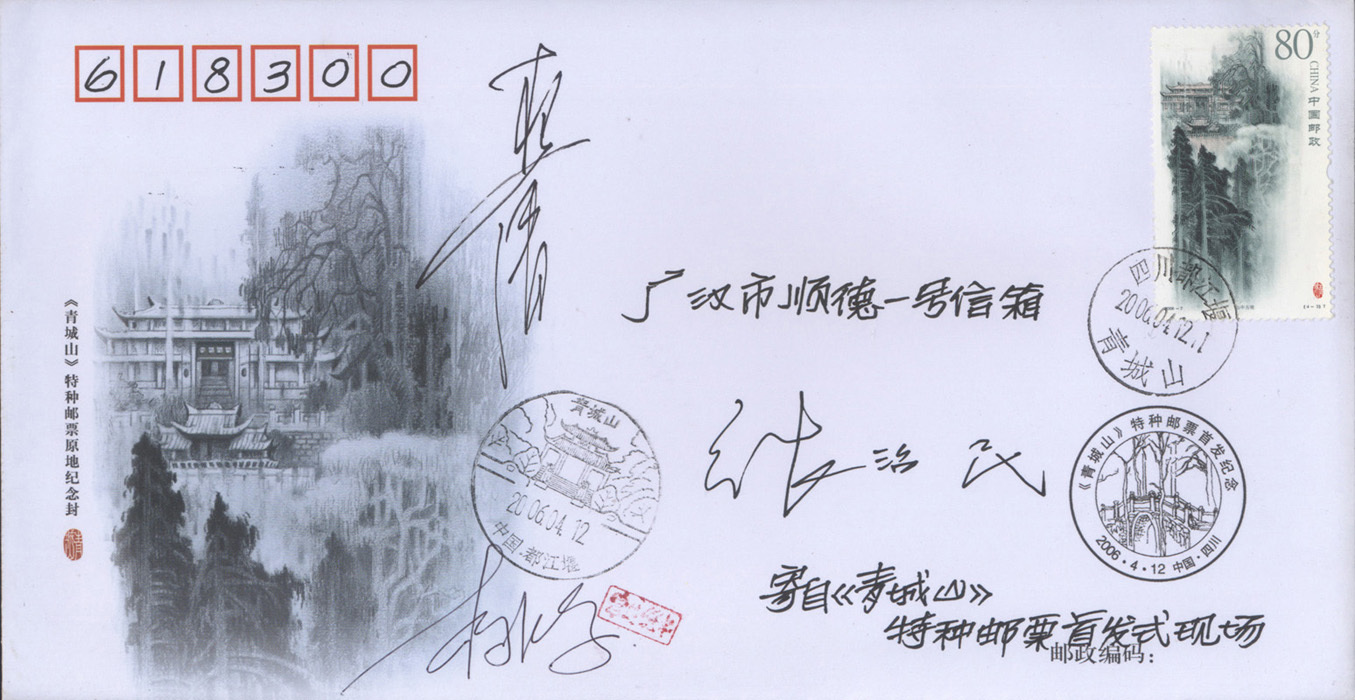 618300
80分
CHINA 中国邮政
《青城山》特种邮票原地纪念封
广汉市顺德一号信箱
张治民
四川都江堰
2006.04.12.11
青城山
青城山
2006.04.12
中国.都江堰
《青城山》特种邮票首发纪念
2006·4·12 中国·四川
寄自《青城山》
特种邮票首发式现场
邮政编码：